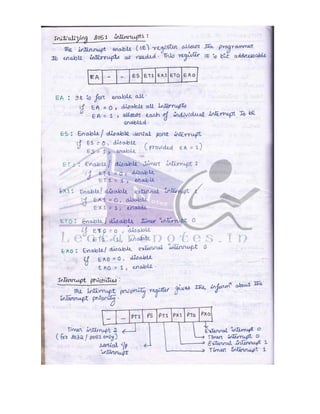 Initializing 8051 interrupts :
The interrupt enable (IE) register allows the programmer
to enable interrupts as needed. This register is bit addressable
EA - - ES ET1 EX1 ET0 EX0
EA : It is for enable all
if EA = 0, disable all interrupts
EA = 1, allows each of individual interrupt to be
enabled.
ES : Enable / disable serial port interrupt
if ES = 0, disable
ES = 1, enable (provided EA = 1)
ET1 : Enable / disable timer interrupt 1
if ET1 = 0, disable
ET1 = 1, enable
EX1 : Enable / disable external interrupt 1
if EX1 = 0, disable
EX1 = 1, enable
ET0 : Enable / disable timer interrupt 0
if ET0 = 0, disable
ET0 = 1, enable
LectureNotes.In
EX0 : Enable / disable external interrupt 0
if EX0 = 0, disable
EX0 = 1, enable
Interrupt priorities :
The interrupt priority register gives the inform about the
interrupt priority.
- - PT2 PS PT1 PX1 PT0 PX0
Timer interrupt 2
(for 8032 / 8052 only)
serial i/p
interrupt
External interrupt 0
Timer interrupt 0
External interrupt 1
Timer interrupt 1